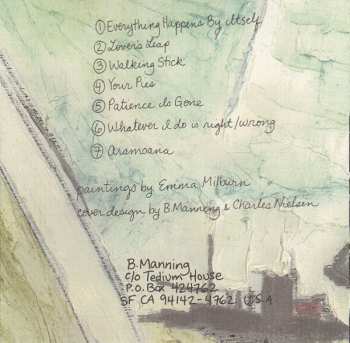 ① Everything Happens By Itself
② Lover's Leap
③ Walking Stick
④ Your Pies
⑤ Patience Is Gone
⑥ Whatever I do is right/wrong
⑦ Aramoana
paintings by Emma Milburn
cover design by B. Manning & Charles Nielsen
B. Manning
c/o Tedium House
P.O. Box 424762
SF CA 94142-4762 USA